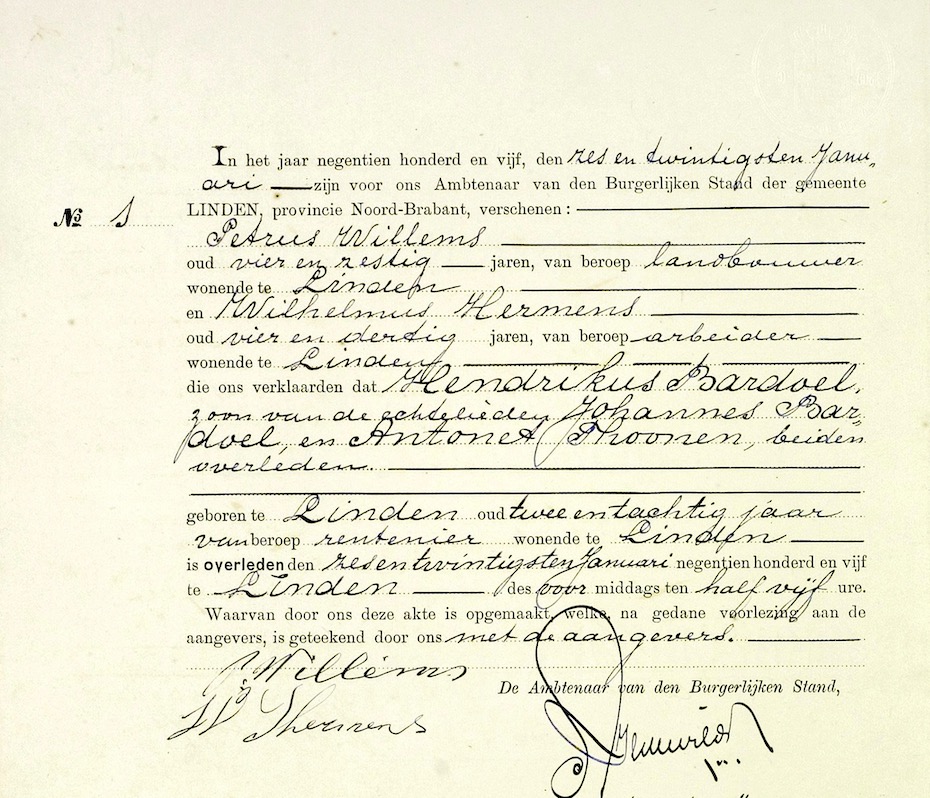 In het jaar negentien honderd en vijf, den zes en twintigsten Janu„
ari — zijn voor ons Ambtenaar van den Burgerlijken Stand der gemeente
No. 1 LINDEN, provincie Noord-Brabant, verschenen :
Petrus Willems
oud vier en zestig jaren, van beroep landbouwer
wonende te Linden
en Wilhelmus Hermens
oud vier en dertig jaren, van beroep arbeider
wonende te Linden
die ons verklaarden dat Hendrikus Bardoel,
zoon van de echtelieden Johannes Bar„
doel, en Antonet Thoonen, beiden
overleden.
geboren te Linden oud twee en tachtig jaar
van beroep rentenier wonende te Linden
is overleden den zes en twintigsten Januari negentien honderd en vijf
te Linden des voor middags ten half vijf ure.
Waarvan door ons deze akte is opgemaakt, welke, na gedane voorlezing aan de
aangevers, is geteekend door ons met de aangevers.
P Willems
De Ambtenaar van den Burgerlijken Stand,
W Hermens